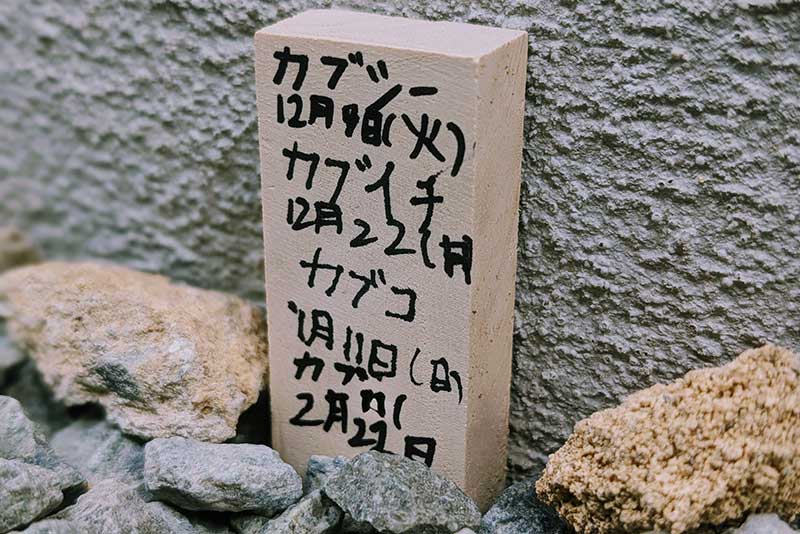 カブジー
12月9日(火)
カブイチ
12月22(月
カブコ
1月11日(日)
カブ
2月22日